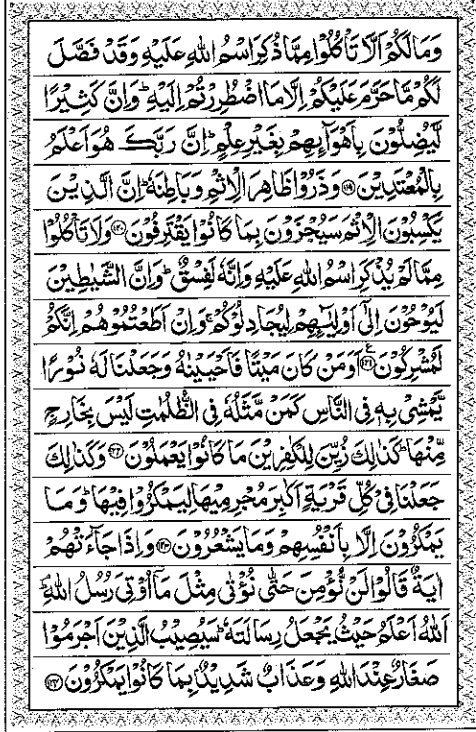 وَمَا لَكُمْ اَلَّا تَاْكُلُوْا مِمَّا ذُكِرَ اسْمُ اللّٰهِ عَلَيْهِ وَقَدْ فَصَّلَ
لَكُمْ مَّا حَرَّمَ عَلَيْكُمْ اِلَّا مَا اضْطُرِرْتُمْ اِلَيْهِ ؕ وَاِنَّ كَثِيْرًا
لَّيُضِلُّوْنَ بِاَهْوَآىِٕهِمْ بِغَيْرِ عِلْمٍ ؕ اِنَّ رَبَّكَ هُوَ اَعْلَمُ
بِالْمُعْتَدِيْنَ ﴿۱۱۹﴾ وَذَرُوْا ظَاهِرَ الْاِثْمِ وَبَاطِنَهٗ ؕ اِنَّ الَّذِيْنَ
يَكْسِبُوْنَ الْاِثْمَ سَيُجْزَوْنَ بِمَا كَانُوْا يَقْتَرِفُوْنَ ﴿۱۲۰﴾ وَلَا تَاْكُلُوْا
مِمَّا لَمْ يُذْكَرِ اسْمُ اللّٰهِ عَلَيْهِ وَاِنَّهٗ لَفِسْقٌ ؕ وَاِنَّ الشَّيٰطِيْنَ
لَيُوْحُوْنَ اِلٰٓى اَوْلِيٰٓىِٕهِمْ لِيُجَادِلُوْكُمْ ۚ وَاِنْ اَطَعْتُمُوْهُمْ اِنَّكُمْ
لَمُشْرِكُوْنَ ﴿۱۲۱﴾ ع اَوَمَنْ كَانَ مَيْتًا فَاَحْيَيْنٰهُ وَجَعَلْنَا لَهٗ نُوْرًا
يَّمْشِيْ بِهٖ فِي النَّاسِ كَمَنْ مَّثَلُهٗ فِي الظُّلُمٰتِ لَيْسَ بِخَارِجٍ
مِّنْهَا ؕ كَذٰلِكَ زُيِّنَ لِلْكٰفِرِيْنَ مَا كَانُوْا يَعْمَلُوْنَ ﴿۱۲۲﴾ وَكَذٰلِكَ
جَعَلْنَا فِيْ كُلِّ قَرْيَةٍ اَكٰبِرَ مُجْرِمِيْهَا لِيَمْكُرُوْا فِيْهَا ؕ وَمَا
يَمْكُرُوْنَ اِلَّا بِاَنْفُسِهِمْ وَمَا يَشْعُرُوْنَ ﴿۱۲۳﴾ وَاِذَا جَآءَتْهُمْ
اٰيَةٌ قَالُوْا لَنْ نُّؤْمِنَ حَتّٰى نُؤْتٰى مِثْلَ مَآ اُوْتِيَ رُسُلُ اللّٰهِ ؕ
اَللّٰهُ اَعْلَمُ حَيْثُ يَجْعَلُ رِسَالَتَهٗ ؕ سَيُصِيْبُ الَّذِيْنَ اَجْرَمُوْا
صَغَارٌ عِنْدَ اللّٰهِ وَعَذَابٌ شَدِيْدٌۢ بِمَا كَانُوْا يَمْكُرُوْنَ ﴿۱۲۴﴾